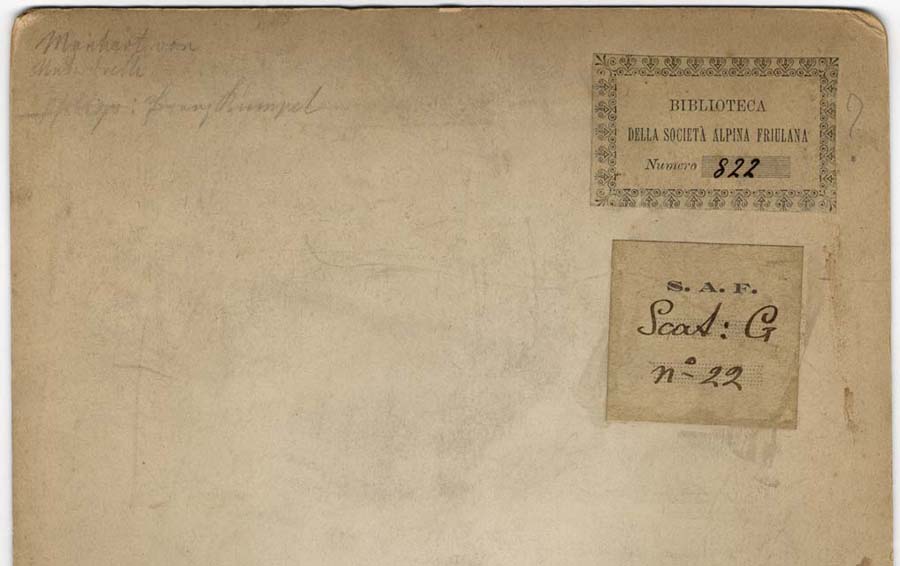 Manhart von
: Franz Rumpel
BIBLIOTECA
DELLA SOCIETÀ ALPINA FRIULANA
Numero 822
?
S. A. F.
Scat: G
nº 22